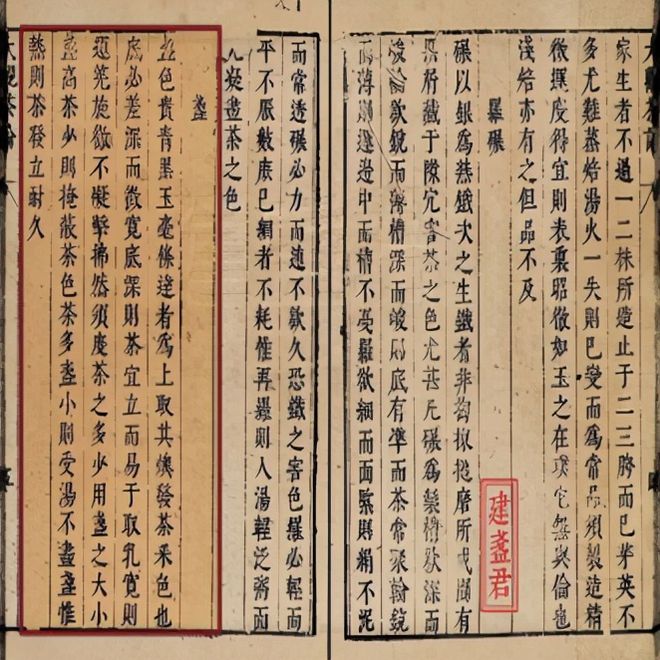 家生者不過一二株所造止于二三胯而已芽英不
多尤難蒸焙湯火一失則已變而爲常品須製造精
微運度得宜則表裏昭徹如玉之在璞它無與倫也
淺焙亦有之但品不及
羅碾
碾以銀爲熟鐵次之生鐵者非掏揀搥磨所成間有
黑屑藏于隙穴害茶之色尤甚凡碾爲製槽欲深而
峻輪欲銳而薄槽深而峻則底有準而茶常聚輪銳
而薄則運邊中而槽不戛羅欲細而面緊則絹不泥
建盞君
而常透碾必力而速不欲久恐鐵之害色羅必輕而
平不厭數庶已細者不耗惟再羅則入湯輕泛粥面
光凝盡茶之色
盞
盞色貴青黑玉毫條達者爲上取其燠發茶采色也
底必差深而微寬底深則茶宜立而易于取乳寬則
運筅旋徹不礙擊拂然須度茶之多少用盞之大小
盞高茶少則掩蔽茶色茶多盞小則受湯不盡盞惟
熱則茶發立耐久